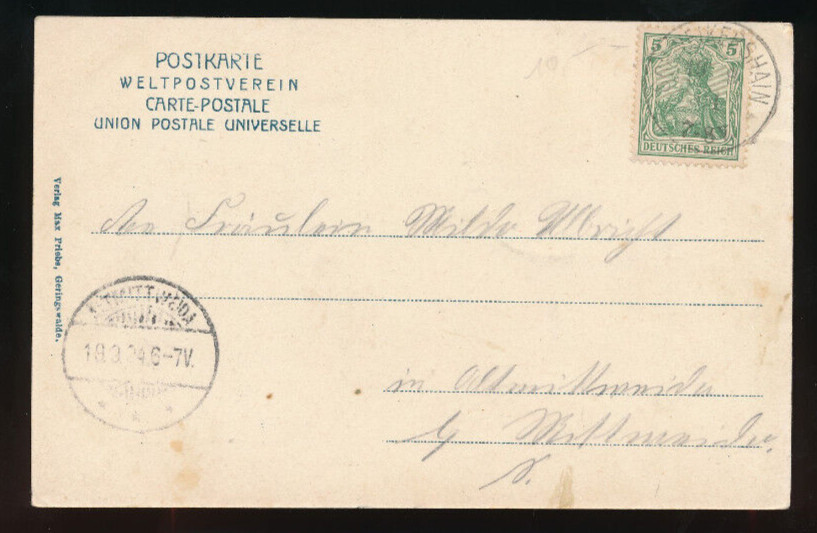 POSTKARTE
WELTPOSTVEREIN
CARTE-POSTALE
UNION POSTALE UNIVERSELLE
5 5
DEUTSCHES REICH
7-8
Verlag Max Friebe, Geringswalde.
An Fräulein Milda Albrecht
ALTMITTWEIDA
18.3.04.6-7V.
in Altmittweida
b/ Mittweida.
S.